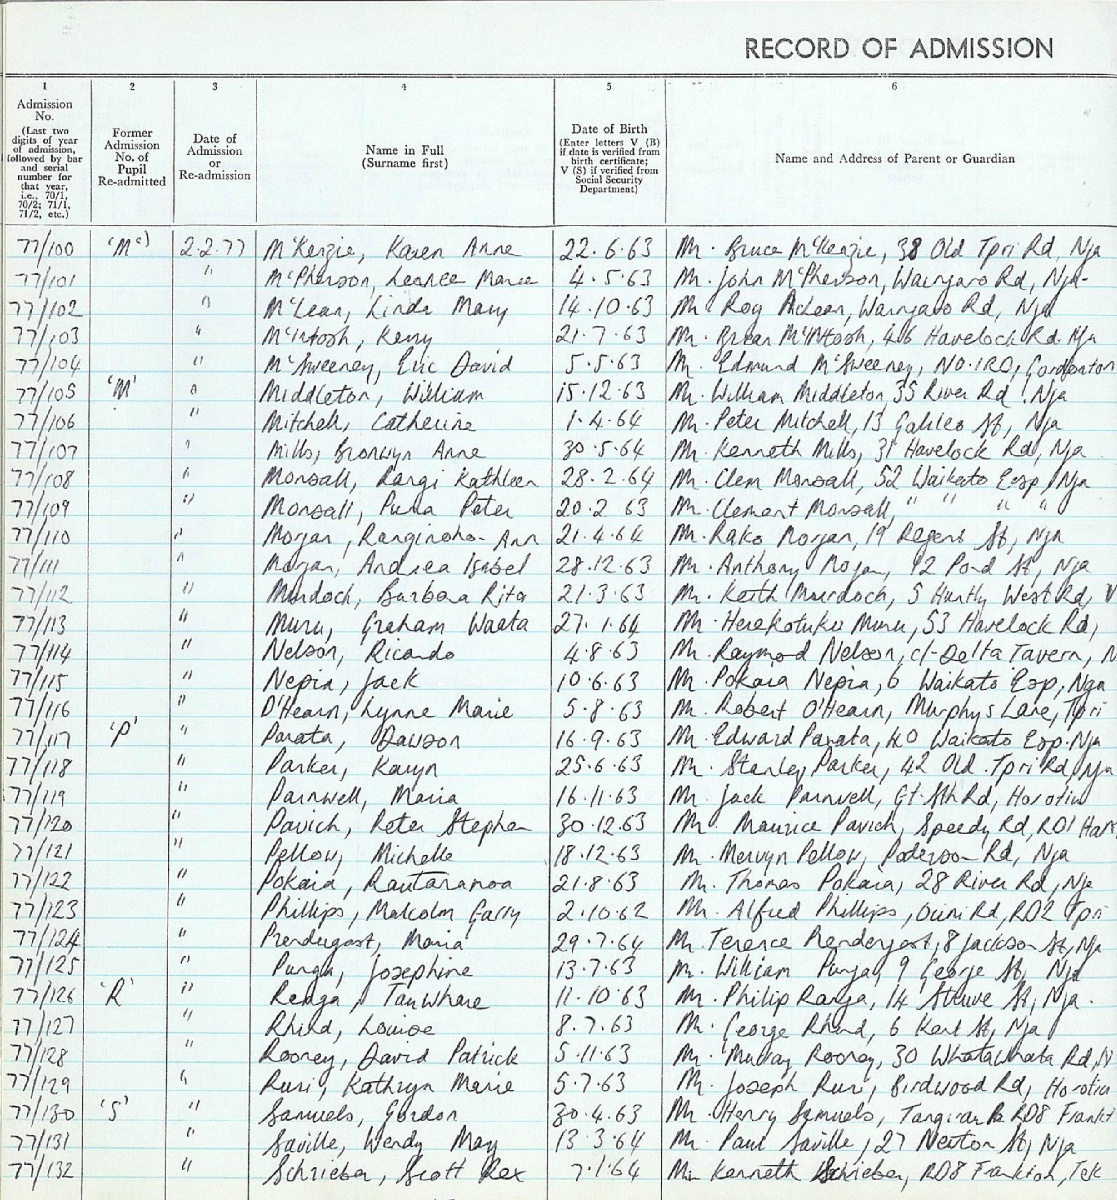 RECORD OF ADMISSION
1 2 3 4 5 6
Admission No. (Last two digits of year of admission, followed by bar and serial number for that year, i.e., 70/1, 70/2; 71/1, 71/2, etc.)
Former Admission No. of Pupil Re-admitted
Date of Admission or Re-admission
Name in Full (Surname first)
Date of Birth (Enter letters V (B) if date is verified from birth certificate; V (S) if verified from Social Security Department)
Name and Address of Parent or Guardian
77/100 'Mc' 2.2.77 McKenzie, Karen Anne 22.6.63 Mr. Bruce McKenzie, 38 Old Tpri Rd, Nja
77/101 " McPherson, Leanee Maree 4.5.63 Mr. John McPherson, Waingaro Rd, Nja
77/102 " McLean, Linda Mary 14.10.63 Mr. Roy McLean, Waingaro Rd, Nja
77/103 " McIntosh, Kerry 21.7.63 Mr. Brian McIntosh, 46 Havelock Rd. Nja
77/104 " McSweeney, Eric David 5.5.63 Mr. Edmund McSweeney, No.1RD, Gordonton
77/105 'M' " Middleton, William 15.12.63 Mr. William Middleton, 35 River Rd, Nja
77/106 " Mitchell, Catherine 1.4.64 Mr. Peter Mitchell, 13 Galileo St, Nja
77/107 " Mills, Bronwyn Anne 30.5.64 Mr. Kenneth Mills, 31 Havelock Rd, Nja
77/108 " Monsall, Rangi Kathleen 28.2.64 Mr. Clem Monsall, 52 Waikato Esp, Nja
77/109 " Monsall, Peter 20.2 63 Mr. Clement Monsall, " " " "
77/110 " Morgan, Ann 21.4.64 Mr. Rako Morgan, 19 Regent St, Nja
77/111 " Morgan, Andrea Isobel 28.12.63 Mr. Anthony Morgan, 12 Pond St, Nja
77/112 " Murdoch, Barbara Rita 21.3.63 Mr. Keith Murdoch, 5 Huntly West Rd,
77/113 " Muru, Graham Waata 27.1.64 Mr. Herekotuku Muru, 53 Havelock Rd,
77/114 " Nelson, Ricardo 4.8.63 Mr. Raymond Nelson, c/- Delta Tavern, N
77/115 " Nepia, Jack 10.6.63 Mr. Pokaia Nepia, 6 Waikato Esp, Nga
77/116 " O'Hearn, Lynne Marie 5.8.63 Mr. Robert O'Hearn, Murphys Lane, Tpri
77/117 'P' " Parata, Dawson 16.9.63 Mr. Edward Parata, 40 Waikato Esp. Nja
77/118 " Parker, Karyn 25.6.63 Mr. Stanley Parker, 42 Old Tpri Rd, Nja
77/119 " Parnwell, Maria 16.11.63 Mr. Jack Parnwell, Gt. Sth Rd, Horotiu
77/120 " Pavich, Peter Stephen 30.12.63 Mr. Maurice Pavich, Speedy Rd, RD1 Ham
77/121 " Pellow, Michelle 18.12.63 Mr. Mervyn Pellow, Rd, Nja
77/122 " Pokaia, Rautaranoa 21.8.63 Mr. Thomas Pokaia, 28 River Rd, Nja
77/123 " Phillips, Malcolm Garry 2.10.62 Mr. Alfred Phillips, Ouini Rd, RD2 Tpri
77/124 " Prendergast, Maria 29.7.64 Mr. Terence Prendergast, 8 Jackson St, Nja
77/125 " Punga, Josephine 13.7.63 Mr. William Punga, 9 George St, Nja
77/126 'R' " Ranga, TauWhare 11.10.63 Mr. Philip Ranga, 14 Struve St, Nja.
77/127 " Rhind, Louise 8.7.63 Mr. George Rhind, 6 Kent St, Nja
77/128 " Rooney, David Patrick 5.11.63 Mr. Murray Rooney, 30 Whatawhata Rd, N
77/129 " Ruri, Kathryn Marie 5.7.63 Mr. Joseph Ruri, Birdwood Rd, Horotiu
77/130 'S' " Samuels, Gordon 30.4.63 Mr. Henry Samuels, RD8 Frankt
77/131 " Saville, Wendy May 13.3.64 Mr. Paul Saville, 27 Newton St, Nja
77/132 " Schrieber, Scott Rex 7.1.64 Mr. Kenneth Schrieber, RD8 Frankton, Tek